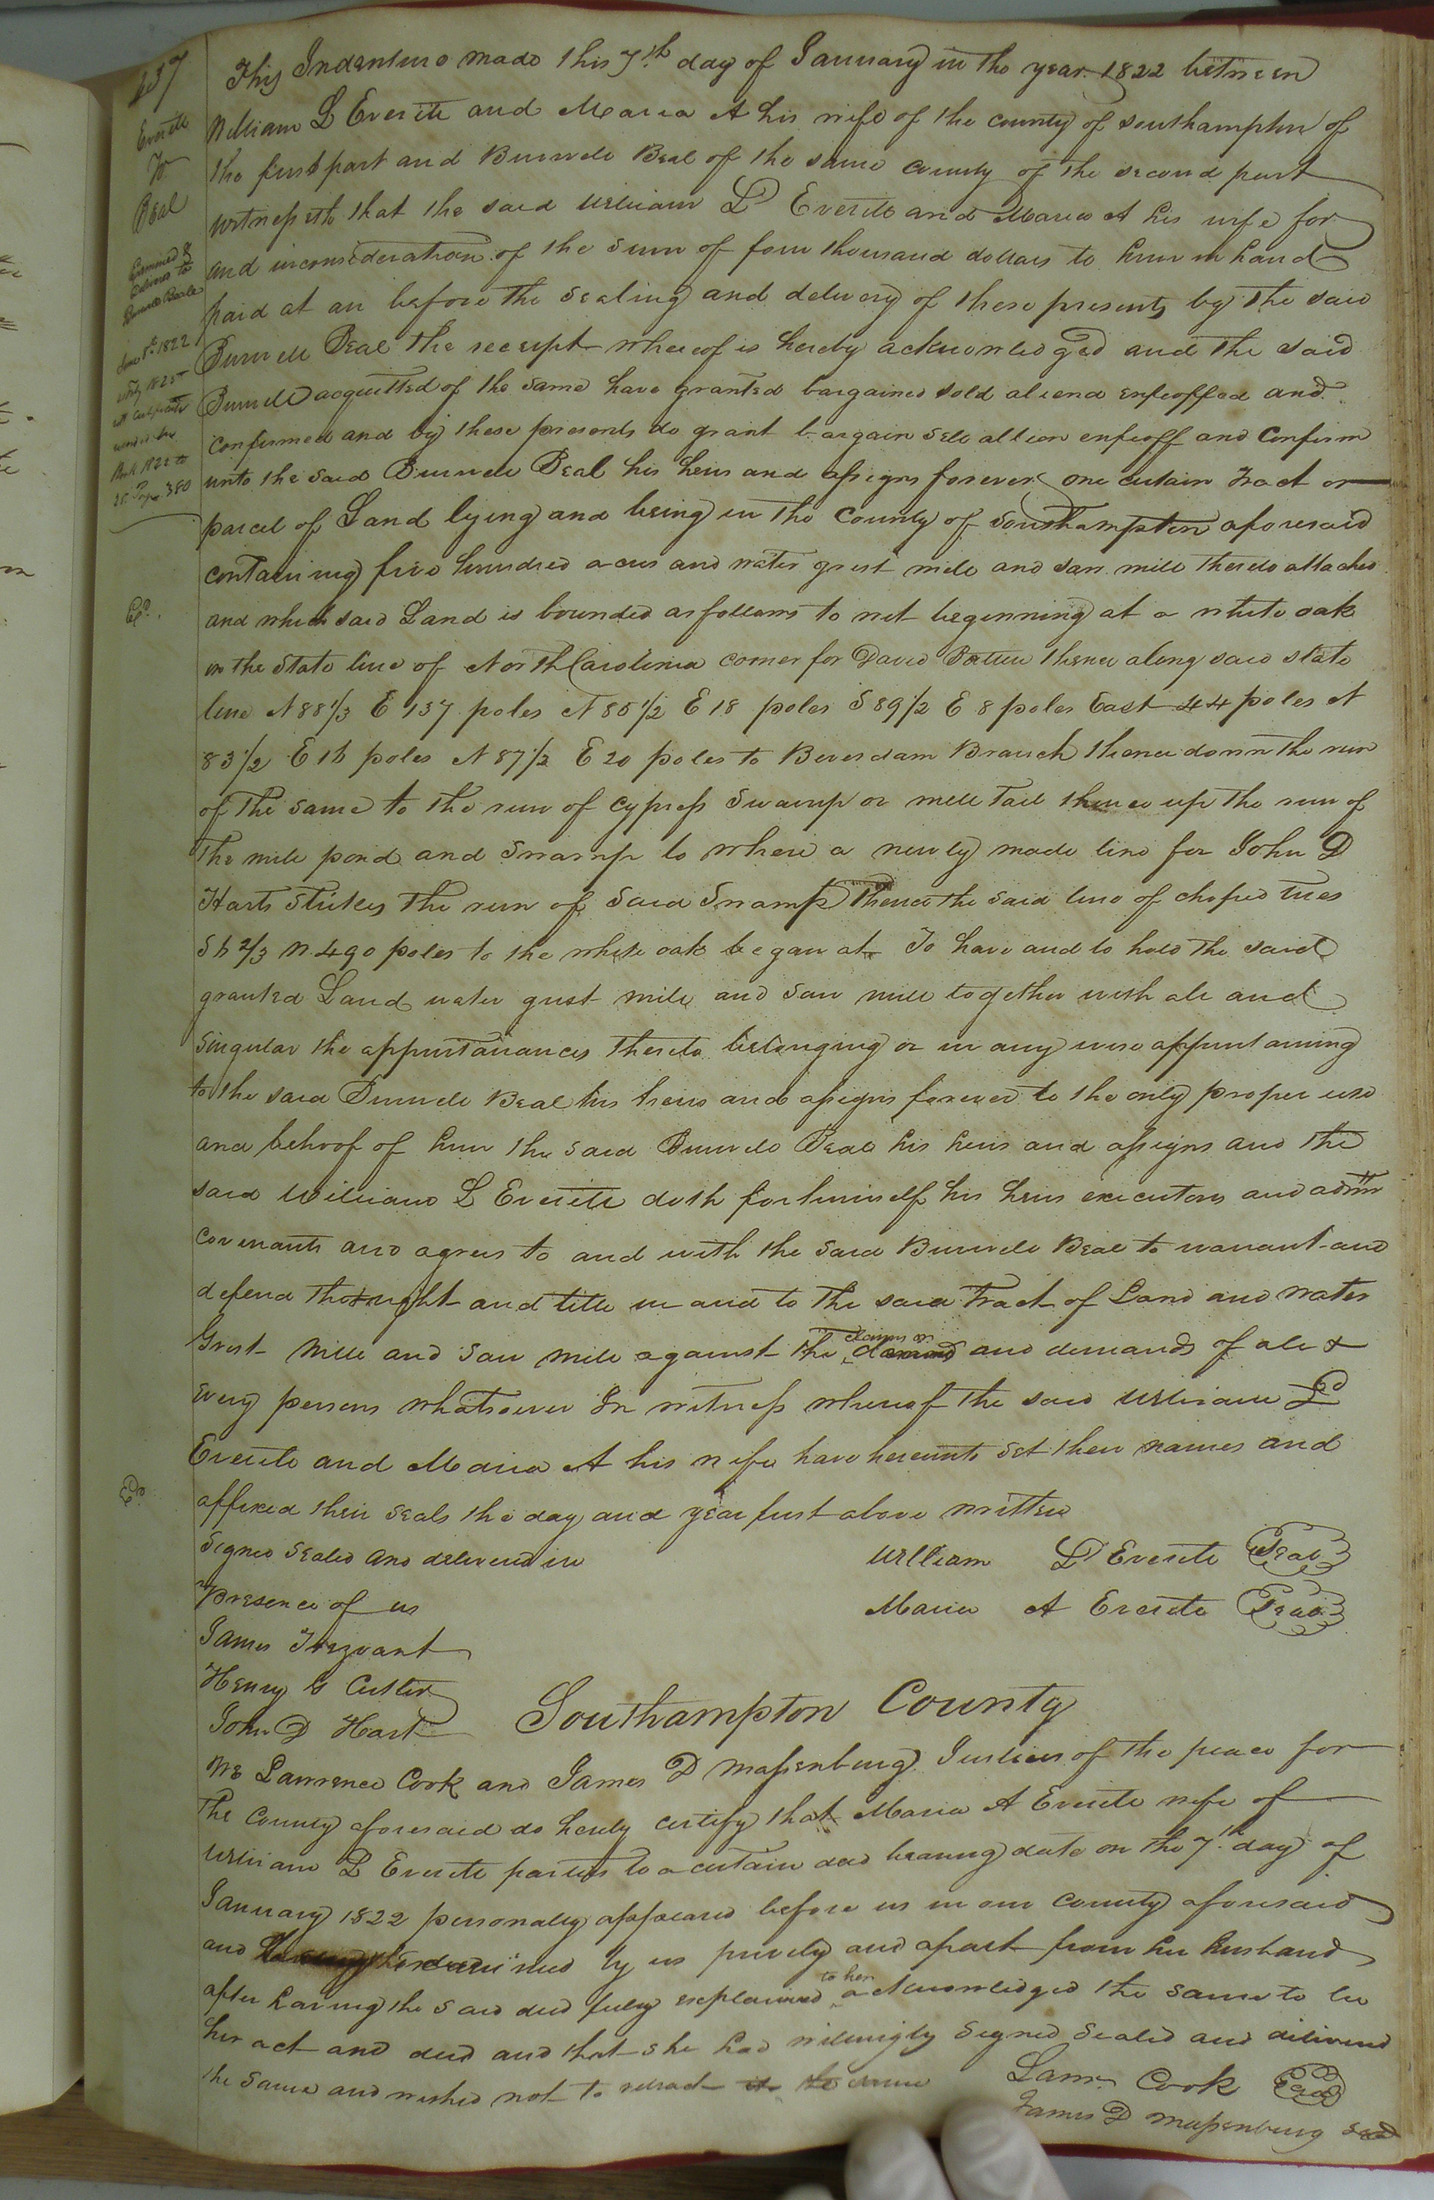 237
Everitt
To
Beal
Examined &
Delivered to
Burwell Beale
1822
This Indenture made this 7th day of January in the year 1822 between
William L Everitt and Maria A his wife of the county of Southampton of
the first part and Burwell Beal of the same county of the second part
witnesseth that the said William L Everitt and Maria A his wife for
and inconsideration of the sum of four thousand dollars to him in hand
paid at an before the sealing and delivery of these presents by the said
Burwell Beal the receipt whereof is hereby acknowledged and the said
Burwell acquitted of the same have granted bargained sold aliend enfeoffed and
confirmed and by these presents do grant bargain sell alien enfeoff and confirm
unto the said Burwell Beal his heirs and assigns forever one certain Tract or
parcel of Land lying and being in the County of Southampton aforesaid
containing five hundred acres and water grist mill and saw mill thereto attached
and which said Land is bounded as follows to wit beginning at a white oak
in the State line of North Carolina corner for David thence along said state
line N 88 1/3 E 137 poles N 85 1/2 E 18 poles S 89 1/2 E 8 poles East 44 poles N
83 1/2 E 16 poles N 87 1/2 E 20 poles to Beverdam Branch thence down the run
of the same to the run of Cypress Swamp or mill Tail thence up the run of
the mill pond and Swamp to where a newly made line for John D
Harts Strikes the run of said Swamp thence the said line of choped trees
S 6 2/3 W 490 poles to the white oak began at To have and to hold the said
granted Land water grist mill and saw mill together with all and
Singular the appurtanances thereto belonging or in any wise appurtaining
to the said Burwell Beal his heirs and assigns forever to the only proper use
and behoof of him the said Burwell Beal his heirs and assigns and the
said William L Everitt doth for himself his heirs executors and admrs
covenants and agrees to and with the said Burwell Beal to warrant and
defend the right and title in and to the said Tract of Land and water
Grist Mill and Saw mill against the claims or and demands of all &
every persons whatsoever In witness whereof the said William L
Everitt and Maria A his wife have hereunto set their names and
affixed their seals the day and year first above written
Signed Sealed and delivered in William L Everitt Seal
Presence of us Maria A Everitt Seal
James Trezvant
Henry G Cutler
John D Hart Southampton County
We Lawrence Cook and James D Massenburg Justices of the peace for
the County aforesaid do hereby certify that Maria A Everitt wife of
William L Everitt parties to a certain deed bearing date on the 7th day of
January 1822 personally appeared before us in our County aforesaid
and by us privily and apart from her husband
after having the said deed fully explained to her acknowledged the same to be
her act and deed and that she had willingly signed sealed and delivered
the same and wished not to retract Lawr Cook Seal
James D Massenburg Seal